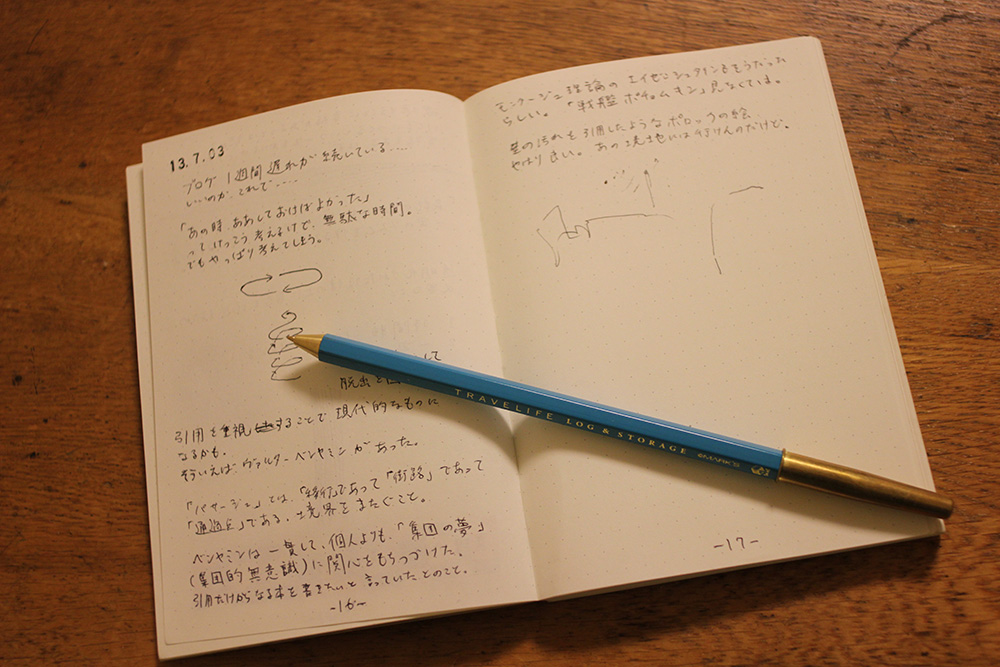 13.7.03
ブログ1週間遅れが続している....
いいのか、これで....
「あの時、ああしておけばよかった」
ってけっこう考えるけど、無駄な時間。
でもやっぱり考えてしまう。
して
脱出と
引用を重視することで現代的なものに
なるかも。
そういえばヴァルター・ベンヤミンがあった。
「パサージュ」では、「移行」であって「街路」であって
「通過点」である、境界をまたぐこと。
ベンヤミンは一貫して、個人よりも、「集団の夢」
(集団的無意識)に関心をもちつづけた。
引用だけからなる本を書きたいと言っていたとのこと。
-16-
モンタージュ理論のエイゼンシュタインもそうだった
らしい。「戦艦ポチョムキン」見なくては。
壁の汚れを引用したようなポロックの絵
やはり良い。あの境地には行けんのだけど。
-17-
TRAVELIFE LOG & STORAGE ©MARK'S